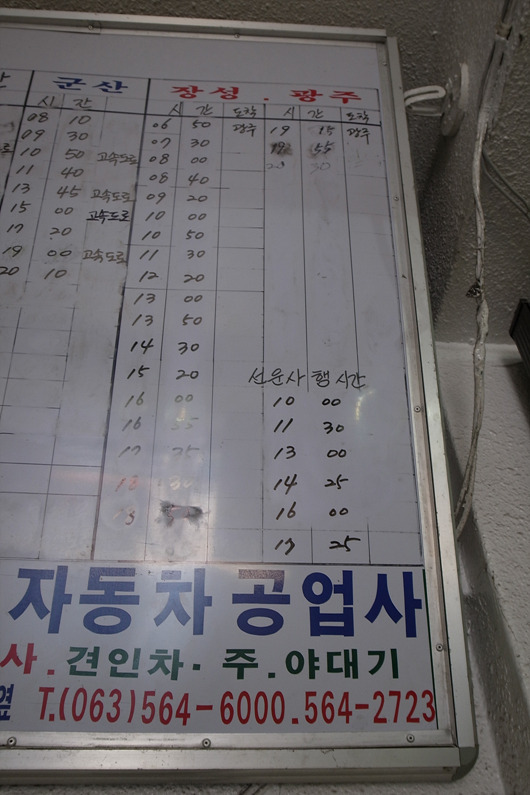 군산 장성 . 광주
시 간 시 간 도착 시 간 도착
08 10 06 50 광주 19 15 광주
09 30 07 30 55
10 50 고속도로 08 00 20 30
11 40 08 40
13 45 고속도로 09 20
15 00 고속도로 10 00
17 20 10 50
19 00 고속도로 11 30
20 10 12 20
13 00
13 50
14 30
15 20 선운사 행 시간
16 00 10 00
16 11 30
17 25 13 00
18 30 14 25
18 16 00
17 25
자동차공업사
사. 견인차· 주.야대기
옆 T.(063)564-6000.564-2723